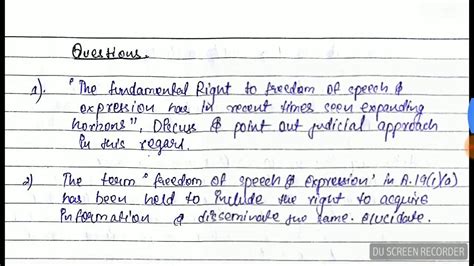 Questions.
1). "The fundamental Right to freedom of speech &
expression has in recent times seen expanding
horizons", Discuss & point out judicial approach
in this regard.
2) The term 'freedom of speech & expression' in A.19(1)(a)
has been held to include the right to acquire
information & disseminate the same. Elucidate.
DU SCREEN RECORDER